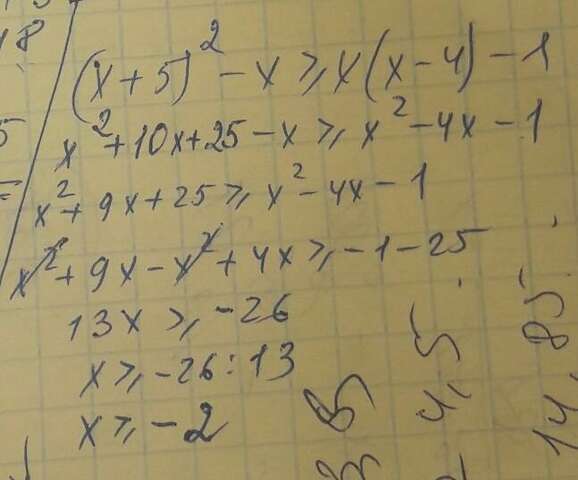 (x+5)² - x ⩾ x(x-4) - 1
x² + 10x + 25 - x ⩾ x² - 4x - 1
x² + 9x + 25 ⩾ x² - 4x - 1
x² + 9x - x² + 4x ⩾ -1 - 25
13x ⩾ -26
x ⩾ -26 : 13
x ⩾ -2